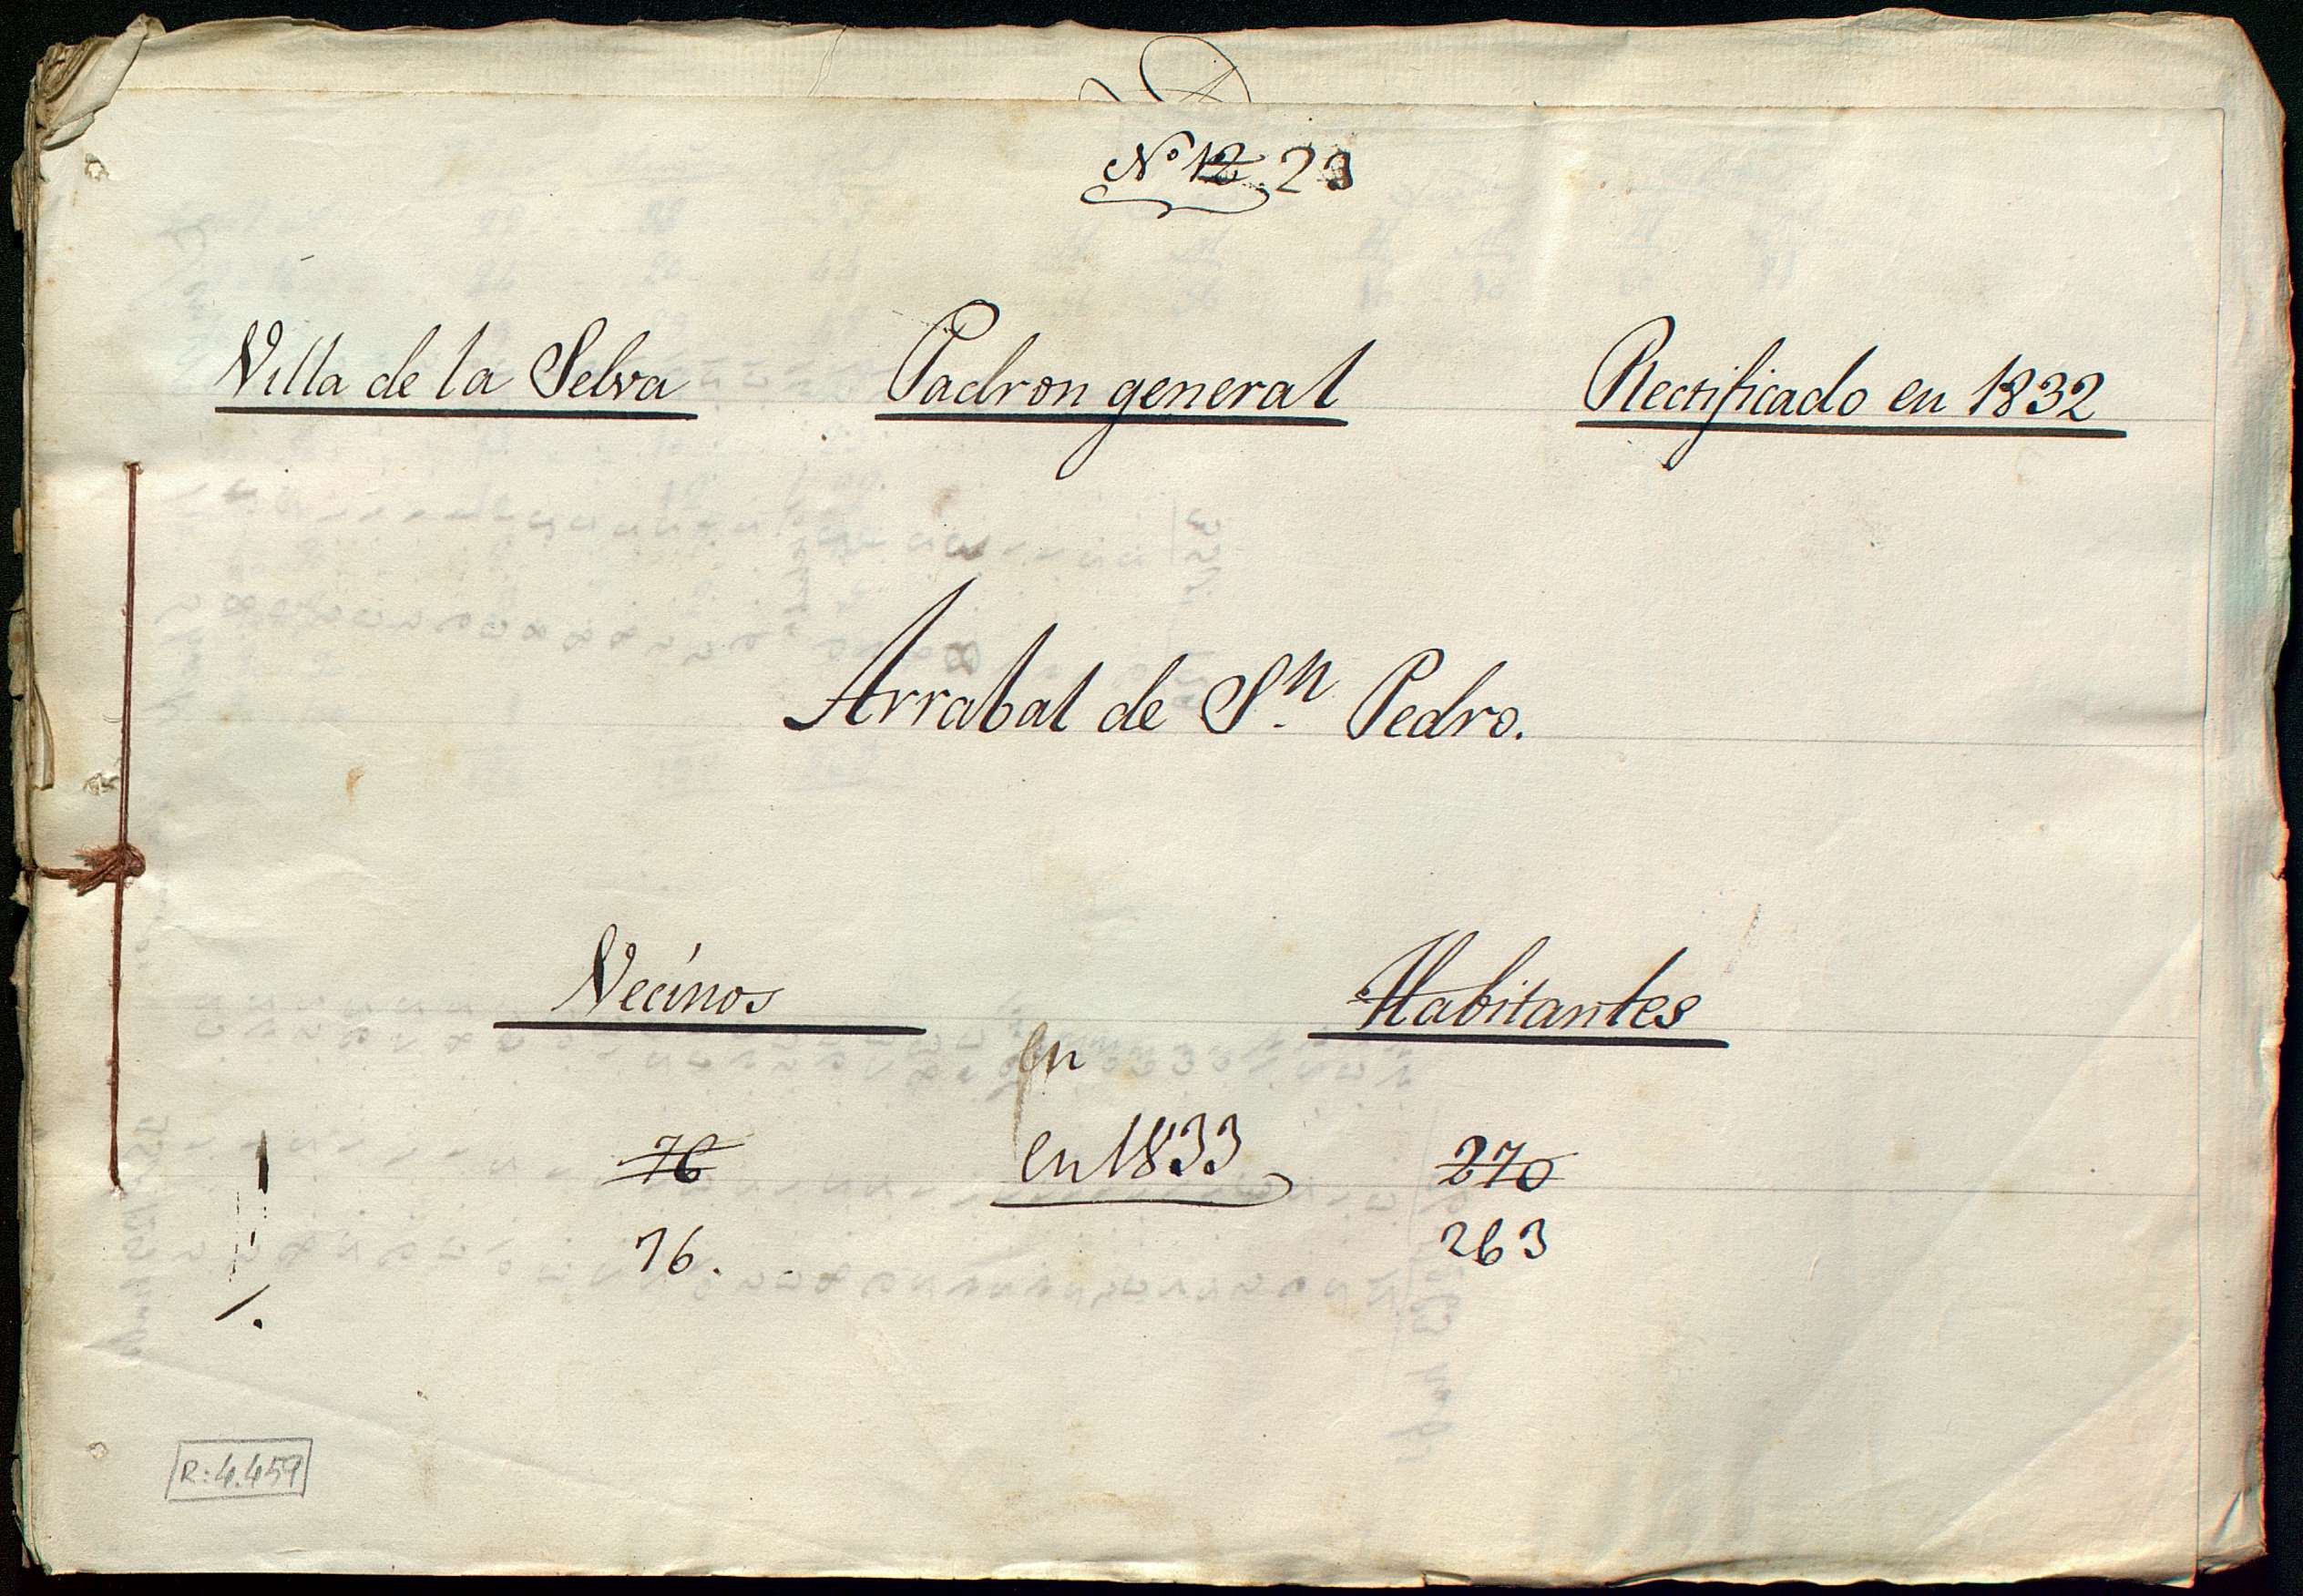 Nº 12. 23
Villa de la Selva Padron general Rectificado en 1832
Arrabal de Sn Pedro.
Vecinos Habitantes
en
76 en 1833 270
76. 263
R: 4.459